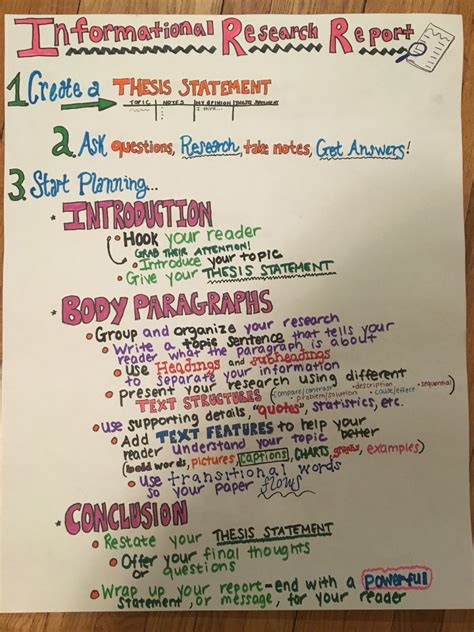 Informational Research Report
1. Create a THESIS STATEMENT
TOPIC NOTES MY OPINION THESIS STATEMENT
I think...
2. Ask questions, Research, take notes, Get Answers!
3. Start Planning...
* INTRODUCTION
• Hook your reader
GRAB THEIR ATTENTION!
• Introduce your topic
• Give your THESIS STATEMENT
* BODY PARAGRAPHS
• Group and organize your research
• Write a topic sentence that tells your
reader what the paragraph is about
• Use Headings and subheadings
to separate your information
• present your research using different
TEXT STRUCTURES (compare/contrast • description • sequential
• problem/solution • cause/effect)
• use supporting details, "quotes", statistics, etc.
• Add TEXT FEATURES to help your
reader understand your topic better
(bold words, pictures, captions, CHARTS, graphs, examples)
• Use transitional words
so your paper flows
* CONCLUSION
• Restate your THESIS STATEMENT
• Offer your final thoughts
or questions
• Wrap up your report - end with a powerful
statement, or message, for your reader